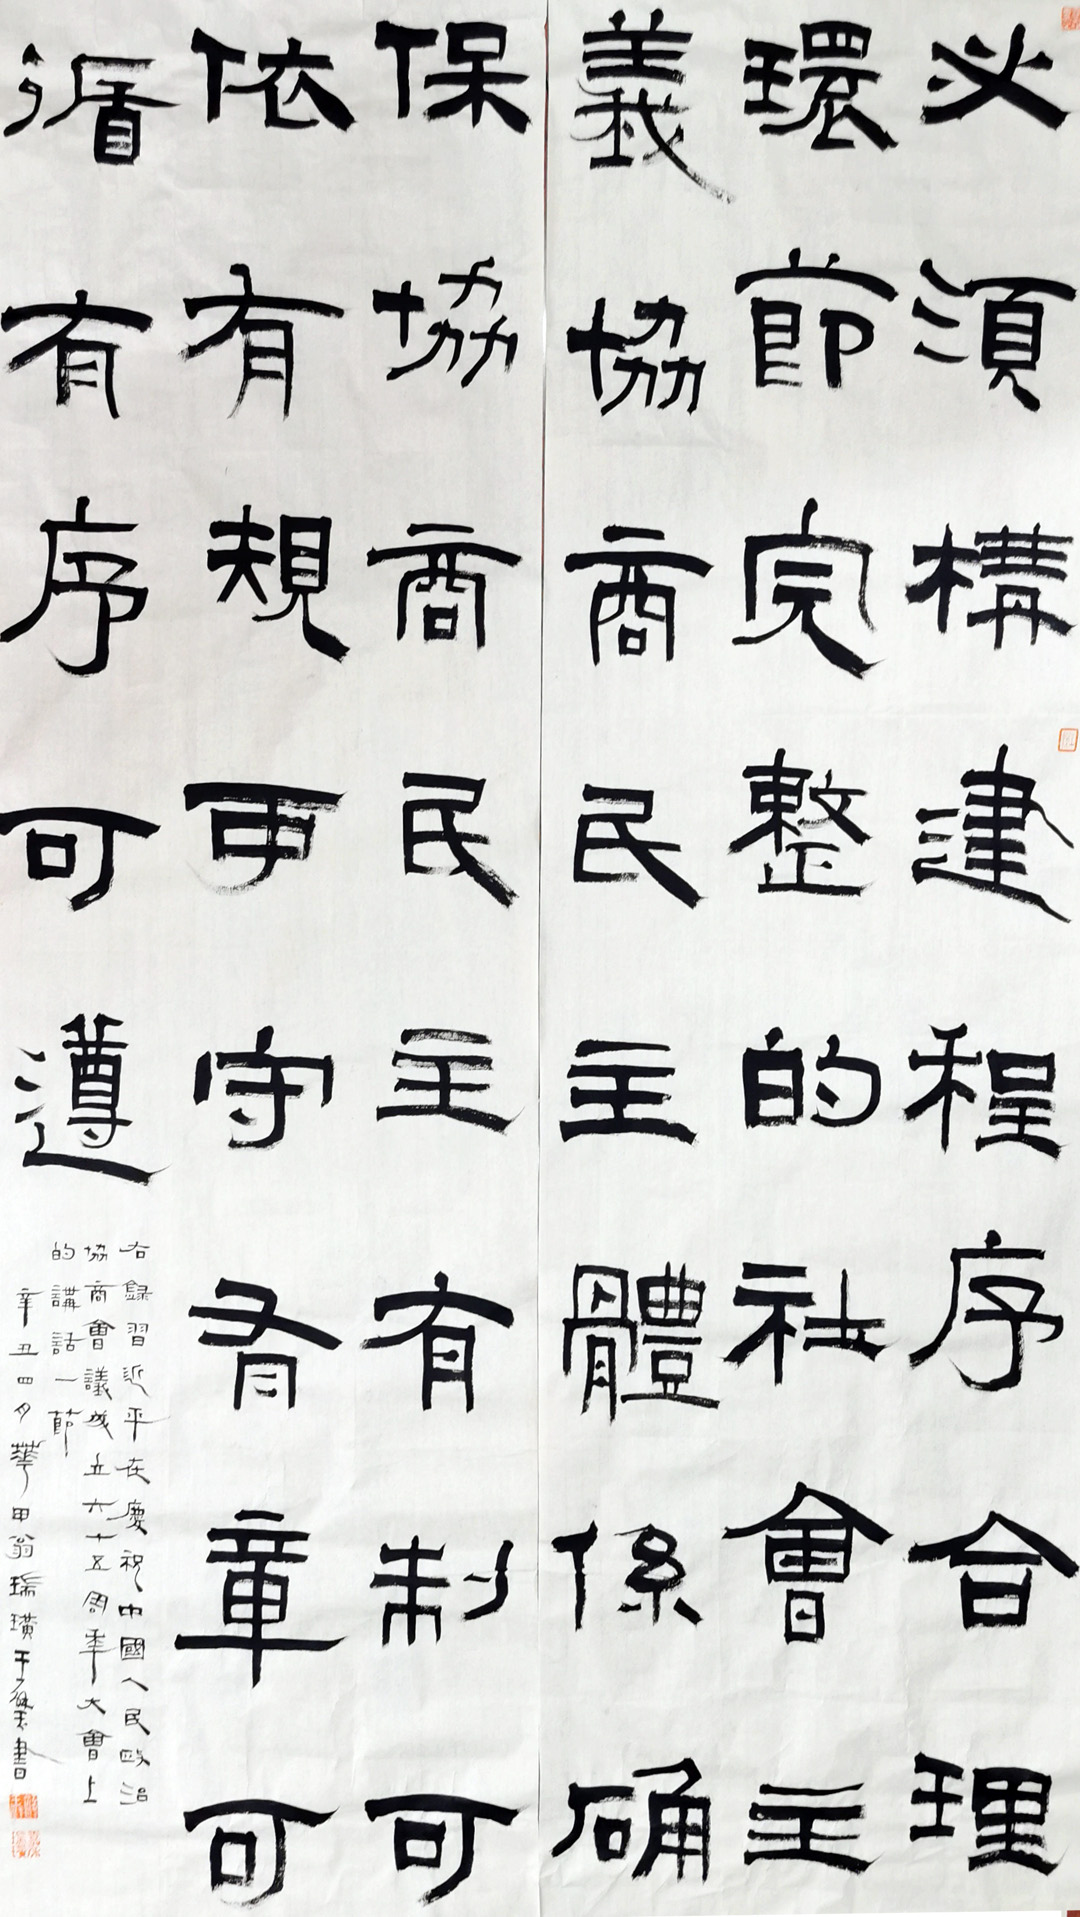 必須構建程序合理
環節完整的社會主
義協商民主體係确
保協商民主有制可
依有規可守有章可
循有序可遵
右録習近平在慶祝中國人民政治
協商會議成立六十五周年大會上
的講話一節
辛丑四月華甲翁瑞璜于書